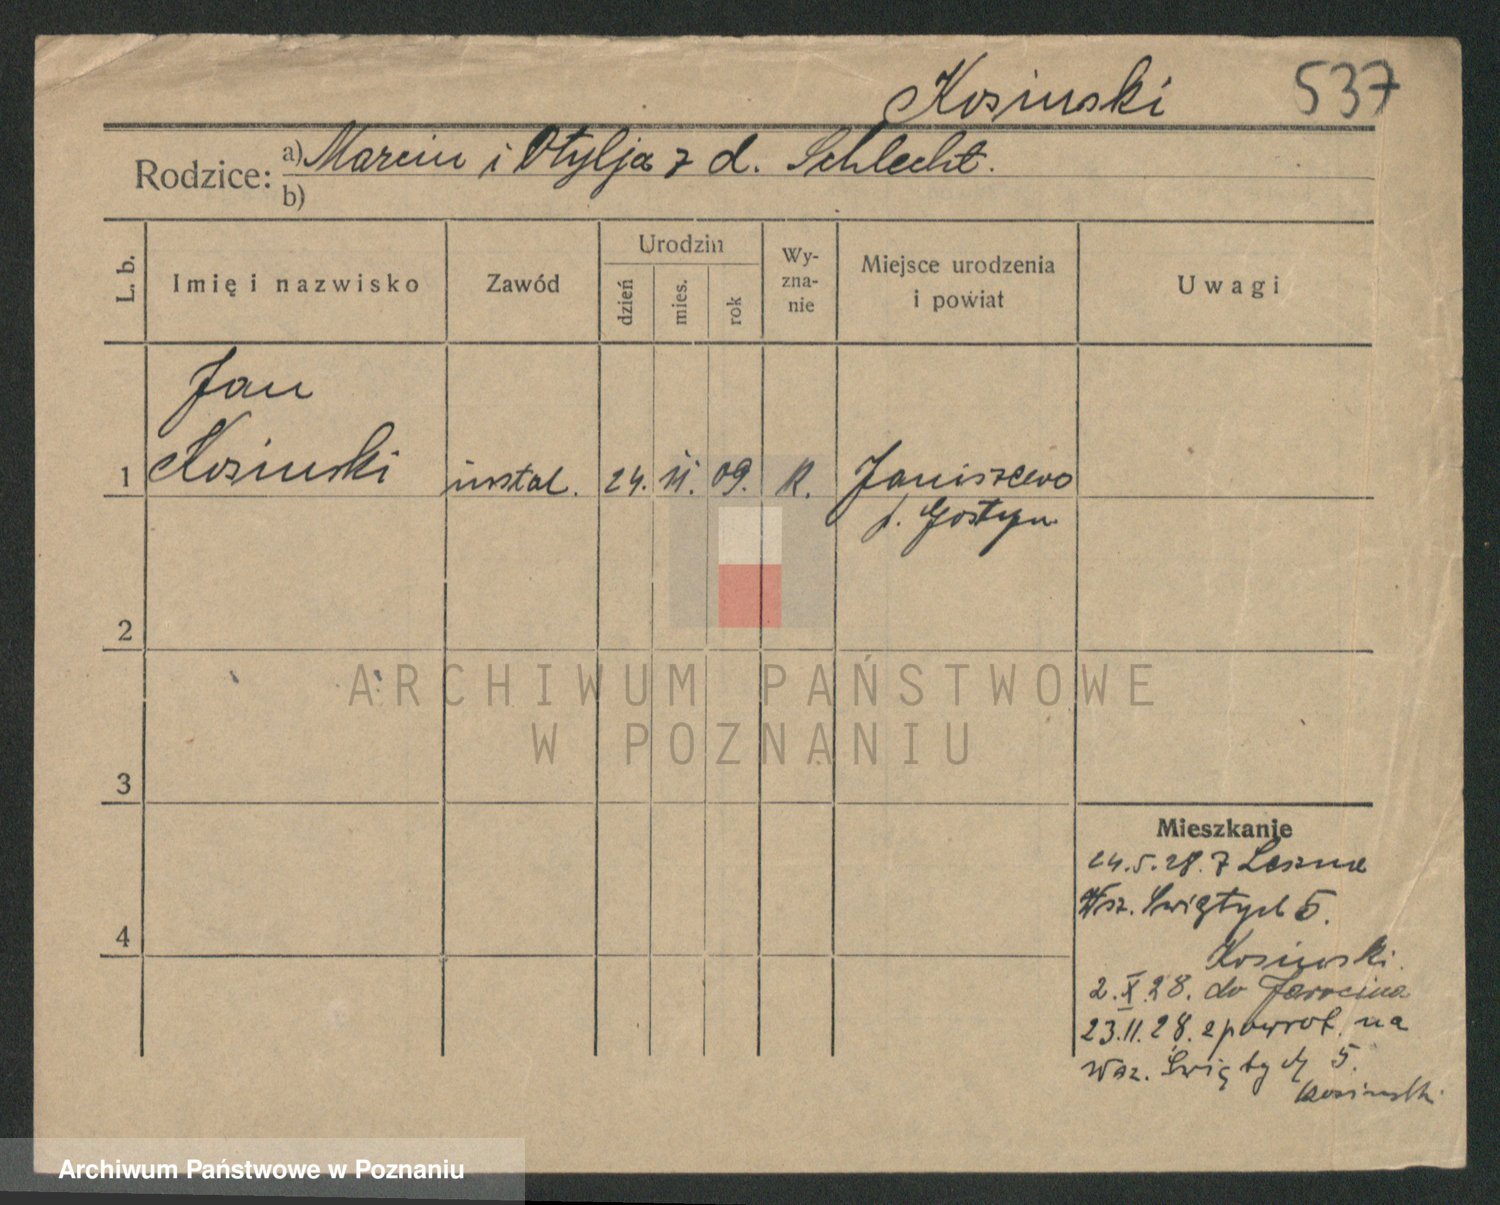 Kosinski 537
Rodzice: a) Marcin i Otylja z d. Schlecht.
b)
L. b.
Imię i nazwisko
Zawód
Urodzin
dzień
mies.
rok
Wy-
zna-
nie
Miejsce urodzenia
i powiat
Uwagi
Jan
1 Kosinski instal. 24. 09. R. Janiszewo
p. Gostyn
2
ARCHIWUM PAŃSTWOWE
W POZNANIU
3
Mieszkanie
24.5.28. z Leszna
Wsz. Świętych 5.
4
Kosinski.
2.X.28. do Jarocina
23.11.28. z powrot. na
Wsz. Świętych 5.
Kosinski
Archiwum Państwowe w Poznaniu